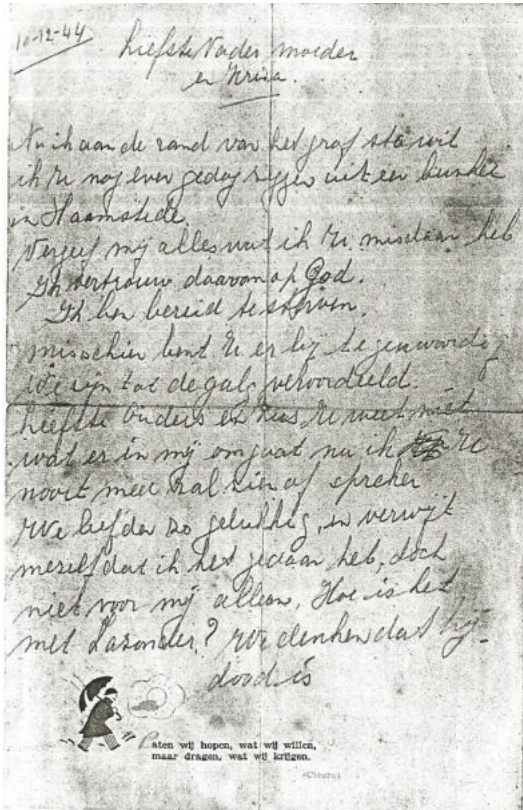 10-12-44
Liefste Vader moeder
en
Nu ik aan de rand van het graf sta wil
ik U nog even gedag zeggen uit een bunker
in Haamstede.
Vergeef mij alles wat ik U misdaan heb
Ik vertrouw daarvan op God.
Ik ben bereid te sterven.
misschien bent U er bij tegenwoordig
We zijn tot de galg veroordeeld.
Liefste Ouders en Zus, U weet niet
wat er in mij omgaat nu ik U
nooit meer zal zien of spreken
We leefden zo gelukkig, en verwijt
mezelf dat ik het gedaan heb, doch
niet voor mij alleen. Hoe is het
met Lazonder? We denken dat hij
dood is
Laten wij hopen, wat wij willen,
maar dragen, wat wij krijgen.
(Cicero)